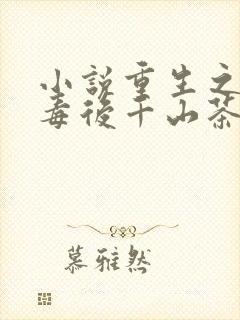 小说重生之
毒後千山茶
慕雅然